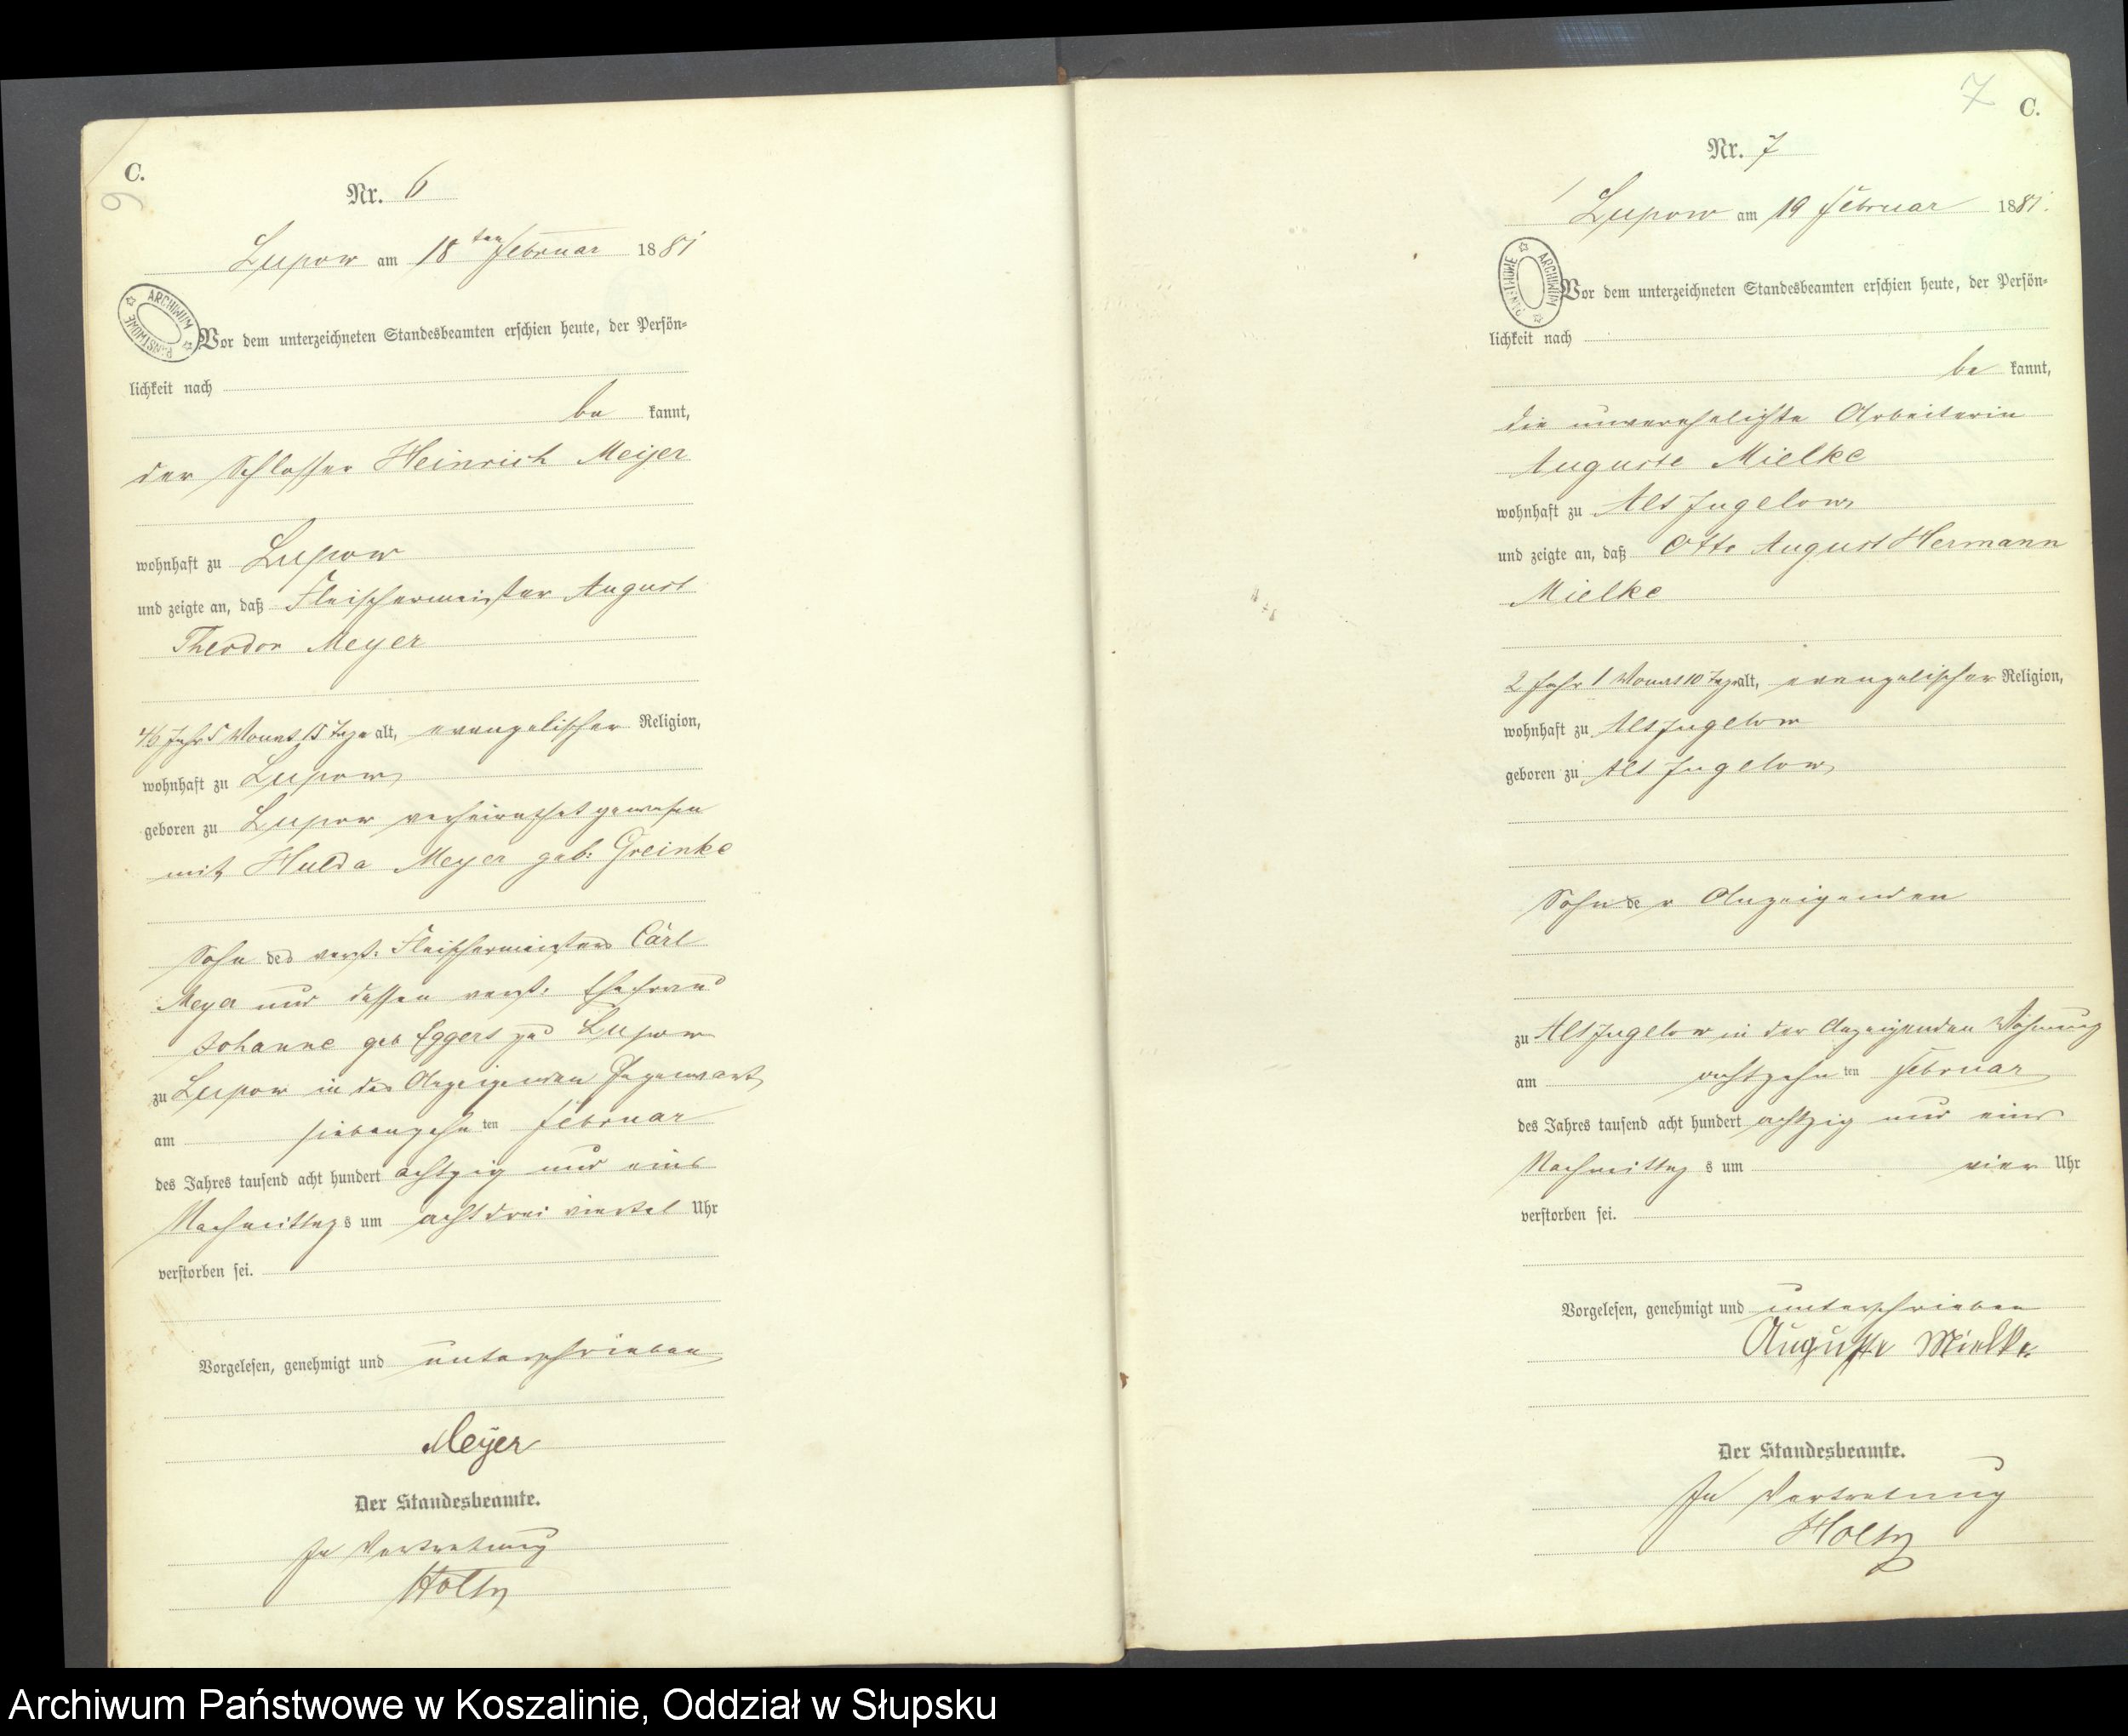 C.
6
Nr. 6
Lupow am 18ten Februar 1881
ARCHIWUM PAŃSTWOWE
Vor dem unterzeichneten Standesbeamten erschien heute, der Persön-
lichkeit nach
be kannt,
der Schlosser Heinrich Meijer
wohnhaft zu Lupow
und zeigte an, daß Fleischermeister August
Theodor Meyer
46 Jahr 5 Monat 15 Tage alt, evangelischer Religion,
wohnhaft zu Lupow
geboren zu Lupow verheirathet gewesen
mit Hulda Meyer geb: Greinke
Sohn des verst: Fleischermeisters Carl
Meyer und dessen verst: Ehefrau
Johanne geb Eggert zu Lupow
zu Lupow in des Anzeigenden Gegenwart
am siebenzehnten Februar
des Jahres tausend acht hundert achtzig und eins
Nachmittags um acht drei viertel Uhr
verstorben sei.
Vorgelesen, genehmigt und unterschrieben
Meyer
Der Standesbeamte.
In Vertretung
Holtz
7 C.
Nr. 7
Lupow am 19 Februar 1881.
ARCHIWUM PAŃSTWOWE
Vor dem unterzeichneten Standesbeamten erschien heute, der Persön-
lichkeit nach
be kannt,
die unverehelichte Arbeiterin
Auguste Mielke
wohnhaft zu Alt Jugelow
und zeigte an, daß Otto August Hermann
Mielke
2 Jahr 1 Monat 10 Tage alt, evangelischer Religion,
wohnhaft zu Alt Jugelow
geboren zu Alt Jugelow
Sohn der Anzeigenden
zu Alt Jugelow in der Anzeigenden Wohnung
am achtzehnten Februar
des Jahres tausend acht hundert achtzig und eins
Nachmittags um vier Uhr
verstorben sei.
Vorgelesen, genehmigt und unterschrieben
Auguste Mielke
Der Standesbeamte.
In Vertretung
Holtz
Archiwum Państwowe w Koszalinie, Oddział w Słupsku